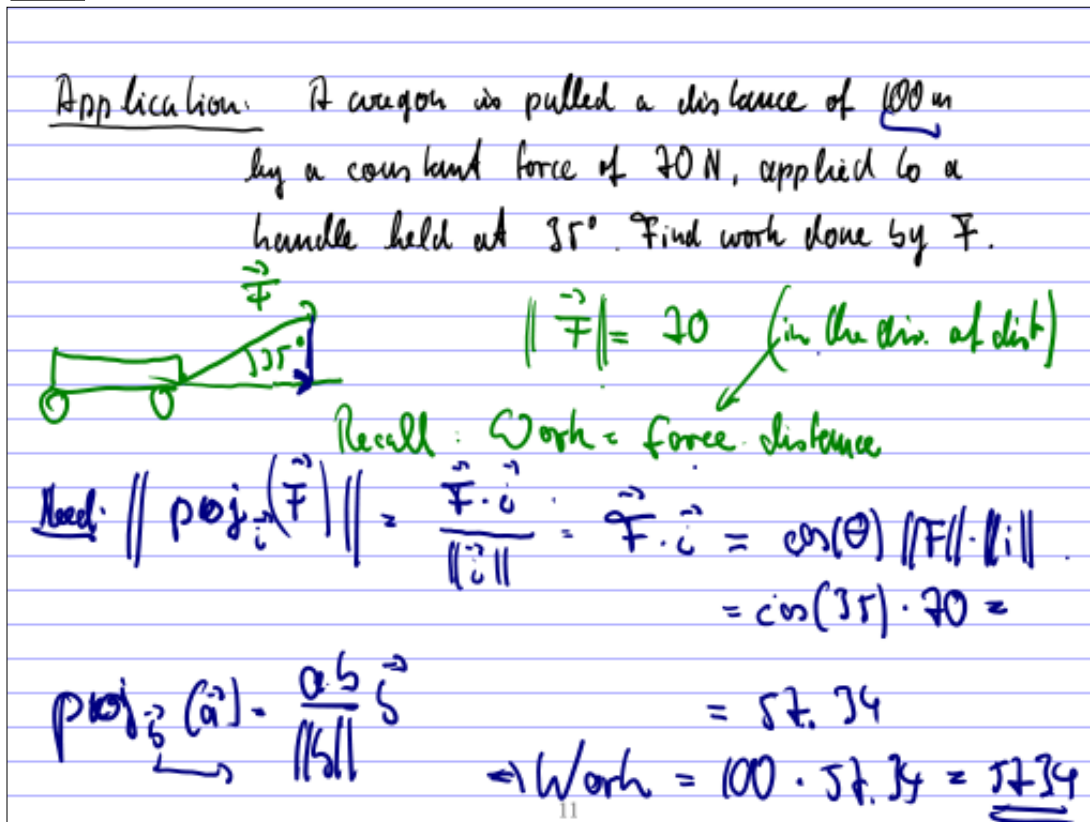 Application: A wagon is pulled a distance of 100 m
by a constant force of 70 N, applied to a
handle held at 35°. Find work done by F.
F⃗
35°
||F⃗|| = 70 (in the dir. of dist)
Recall: Work = force · distance
Need: || proj_i⃗ (F⃗) || = F⃗ · i⃗ / ||i⃗|| = F⃗ · i⃗ = cos(θ) ||F|| · ||i||
= cos(35) · 70 =
proj_b⃗ (a⃗) = a·b / ||b|| b⃗
= 57.34
⇒ Work = 100 · 57.34 = 5734
11